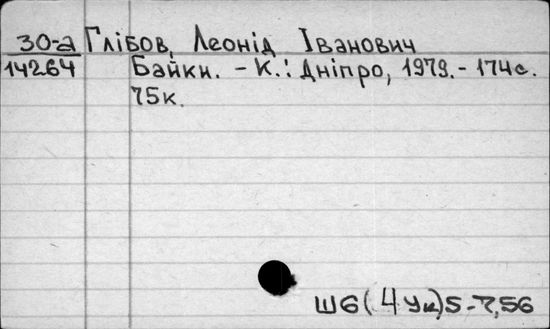 30-а Глібов, Леонід Іванович
14264 Байки. - К.: Дніпро, 1979. - 174с.
75к.
Ш6(4Ук)5-7,56